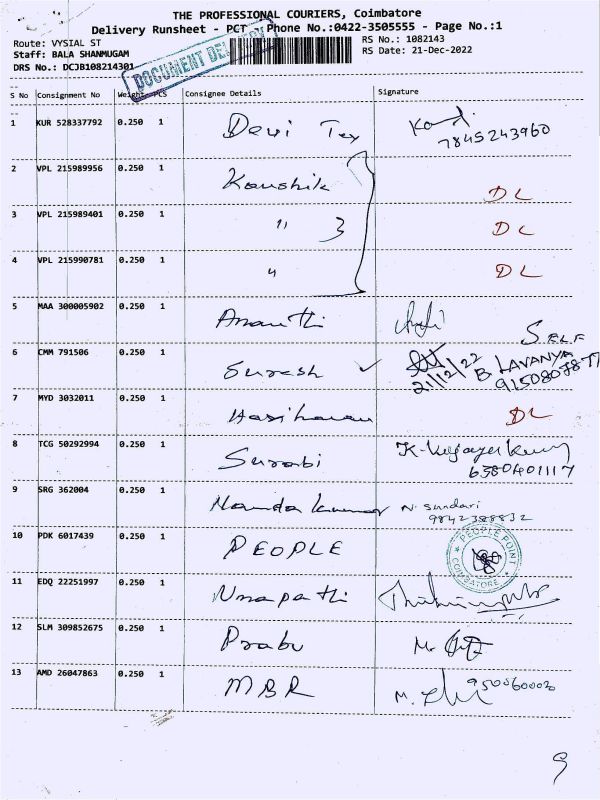 THE PROFESSIONAL COURIERS, Coimbatore
Delivery Runsheet - PCT Phone No.:0422-3505555 - Page No.:1
Route: VYSIAL ST
RS No.: 1082143
Staff: BALA SHANMUGAM
RS Date: 21-Dec-2022
DRS No.: DCJB108214301
DOCUMENT DELIVERY
S No Consignment No Weight PCS Consignee Details Signature
1 KUR 528337792 0.250 1 Devi Tex
7845243960
2 VPL 215989956 0.250 1 Koushik DL
3 VPL 215989401 0.250 1 " 3 DL
4 VPL 215990781 0.250 1 " DL
5 MAA 300005902 0.250 1 Ananthi
SELF
6 CMM 791506 0.250 1 Suresh ✓ 21/12/22 B. LAVANYA
7 MYD 3032011 0.250 1 Hariharan DL
8 TCG 50292994 0.250 1 Surabi
6380401117
9 SRG 362004 0.250 1 Nandakumar N. Sundari
10 PDK 6017439 0.250 1 PEOPLE
PEOPLE POINT
COIMBATORE
11 EDQ 22251997 0.250 1 Umapathi
12 SLM 309852675 0.250 1 Prabu
13 AMD 26047863 0.250 1 MBR
9